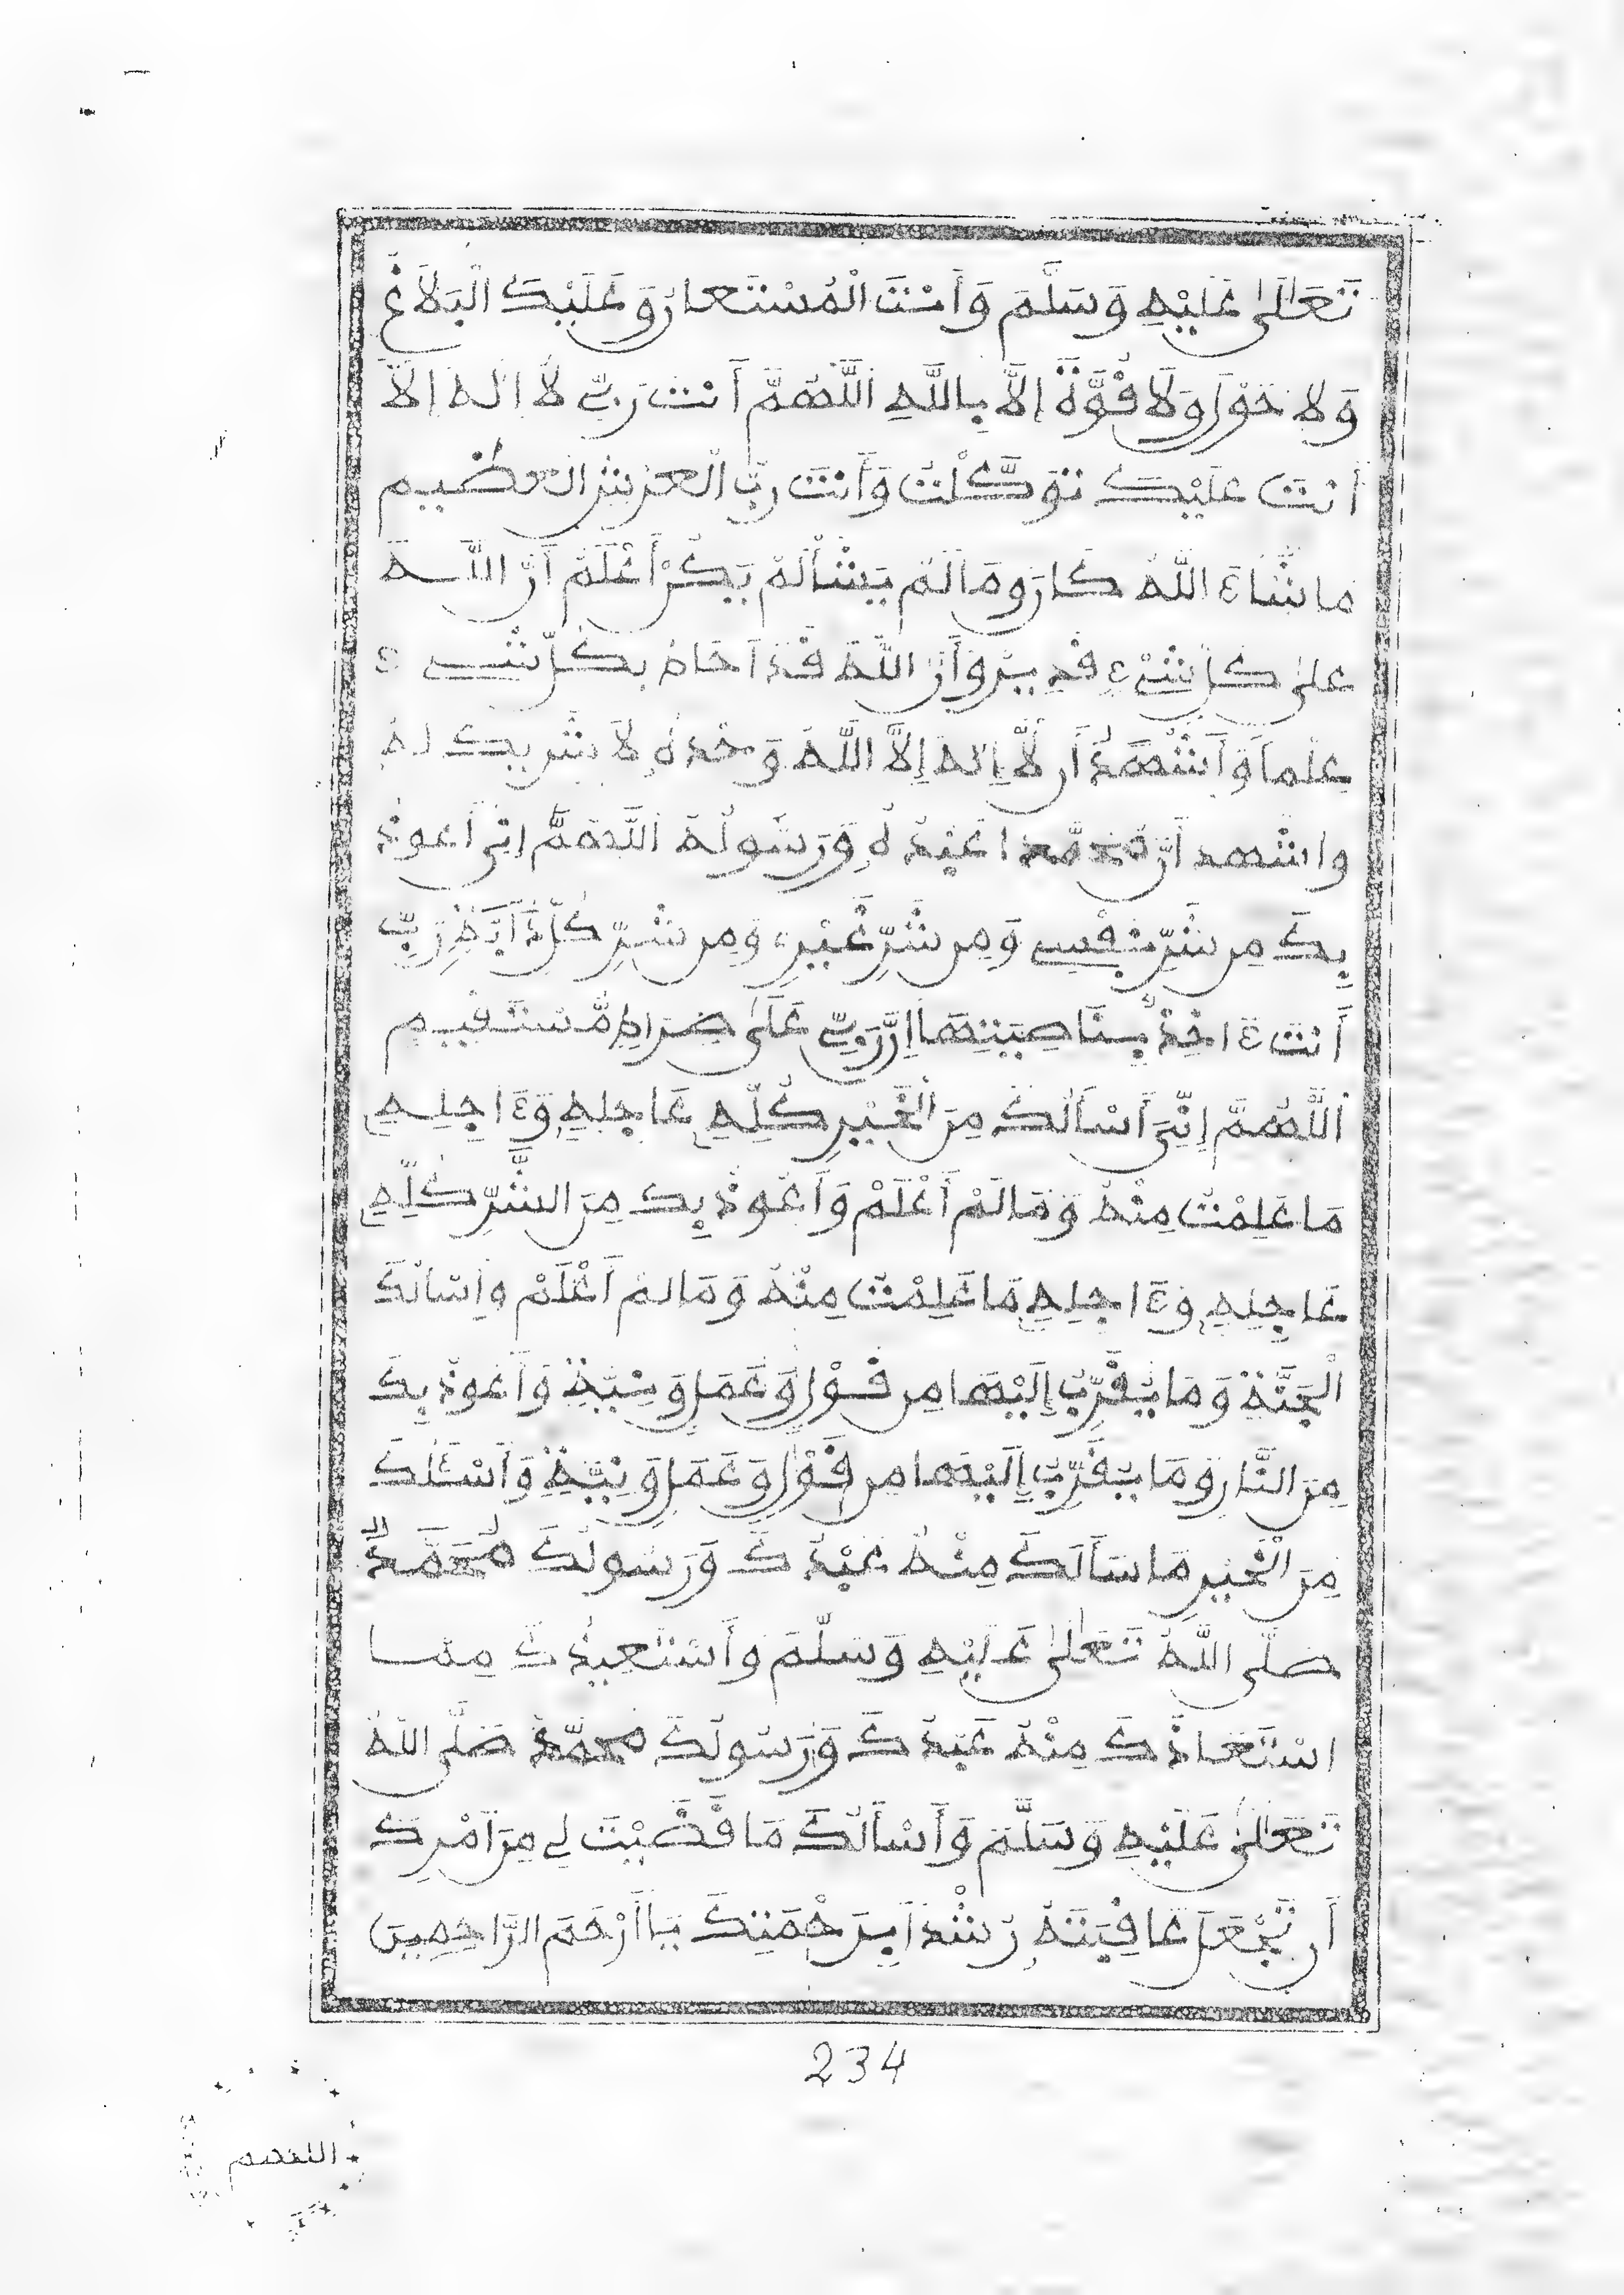 تَعَالَىٰ عَلَيْهِ وَسَلَّمَ وَأَنْتَ الْمُسْتَعَانُ وَعَلَيْكَ الْبَلَاغُ
وَلَا حَوْلَ وَلَا قُوَّةَ إِلَّا بِاللَّهِ اللَّهُمَّ أَنْتَ رَبِّي لَا إِلَٰهَ إِلَّا
أَنْتَ عَلَيْكَ تَوَكَّلْتُ وَأَنْتَ رَبُّ الْعَرْشِ الْعَظِيمِ
مَا شَاءَ اللَّهُ كَانَ وَمَا لَمْ يَشَأْ لَمْ يَكُنْ أَعْلَمُ أَنَّ اللَّهَ
عَلَىٰ كُلِّ شَيْءٍ قَدِيرٌ وَأَنَّ اللَّهَ قَدْ أَحَاطَ بِكُلِّ شَيْءٍ
عِلْمًا وَأَشْهَدُ أَن لَّا إِلَٰهَ إِلَّا اللَّهُ وَحْدَهُ لَا شَرِيكَ لَهُ
وَأَشْهَدُ أَنَّ مُحَمَّدًا عَبْدُهُ وَرَسُولُهُ اللَّهُمَّ إِنِّي أَعُوذُ
بِكَ مِن شَرِّ نَفْسِي وَمِن شَرِّ غَيْرِي وَمِن شَرِّ كُلِّ دَابَّةٍ رَبِّي
أَنْتَ ءَاخِذٌ بِنَاصِيَتِهَا إِنَّ رَبِّي عَلَىٰ صِرَاطٍ مُّسْتَقِيمٍ
اللَّهُمَّ إِنِّي أَسْأَلُكَ مِنَ الْخَيْرِ كُلِّهِ عَاجِلِهِ وَءَاجِلِهِ
مَا عَلِمْتُ مِنْهُ وَمَا لَمْ أَعْلَمْ وَأَعُوذُ بِكَ مِنَ الشَّرِّ كُلِّهِ
عَاجِلِهِ وَءَاجِلِهِ مَا عَلِمْتُ مِنْهُ وَمَا لَمْ أَعْلَمْ وَأَسْأَلُكَ
الْجَنَّةَ وَمَا يُقَرِّبُ إِلَيْهَا مِن قَوْلٍ وَعَمَلٍ وَنِيَّةٍ وَأَعُوذُ بِكَ
مِنَ النَّارِ وَمَا يُقَرِّبُ إِلَيْهَا مِن قَوْلٍ وَعَمَلٍ وَنِيَّةٍ وَأَسْئَلُكَ
مِنَ الْخَيْرِ مَا سَأَلَكَ مِنْهُ عَبْدُكَ وَرَسُولُكَ مُحَمَّدٌ
صَلَّى اللَّهُ تَعَالَىٰ عَلَيْهِ وَسَلَّمَ وَأَسْتَعِيذُكَ مِمَّا
اسْتَعَاذَكَ مِنْهُ عَبْدُكَ وَرَسُولُكَ مُحَمَّدٌ صَلَّى اللَّهُ
تَعَالَىٰ عَلَيْهِ وَسَلَّمَ وَأَسْأَلُكَ مَا قَضَيْتَ لِي مِنَ امْرِكَ
أَن تَجْعَلَ عَاقِبَتَهُ رُشْدًا بِرَحْمَتِكَ يَا أَرْحَمَ الرَّاحِمِينَ
234
اللهم